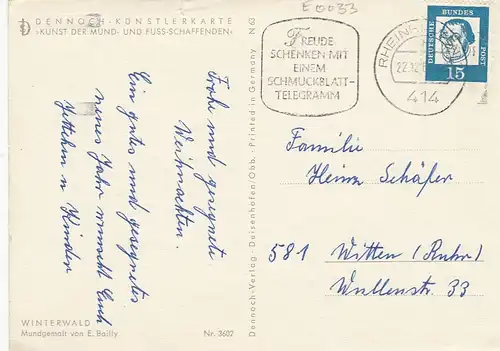 DENNOCH-KÜNSTLERKARTE
»KUNST DER MUND- UND FUSS-SCHAFFENDEN«
Frohe und gesegnete
Weihnachten.
Ein gutes und gesegnetes
neues Jahr wünscht Euch
u Kinder
WINTERWALD
Mundgemalt von E. Bailly
Nr. 3602
Dennoch-Verlag · Deisenhofen/Obb. · Printed in Germany N63
E 0033
FREUDE
SCHENKEN MIT
EINEM
SCHMUCKBLATT-
TELEGRAMM
RHEINH
22.12.
414
DEUTSCHE
BUNDES
POST
15
Familie
Heinz Schäfer
581 Witten (Ruhr)
Wullenstr. 33